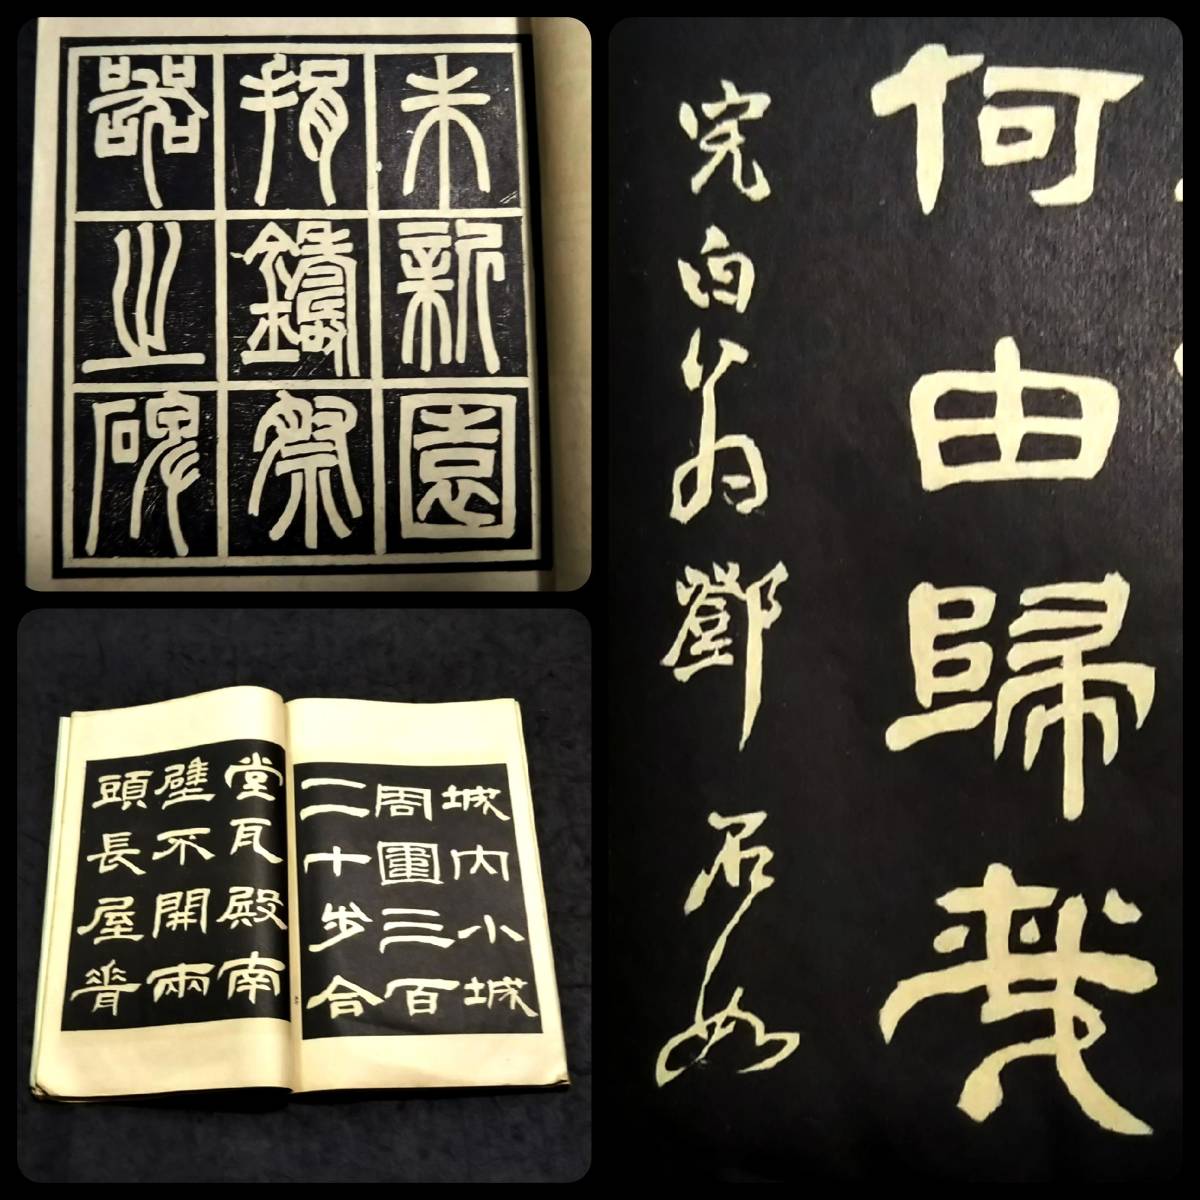 朱新園
捐鑄祭
器之碑
城内小城
周圍三百
二十步合
堂瓦殿南
壁不開兩
頭長屋脊
何由歸哉
完白翁鄧石如